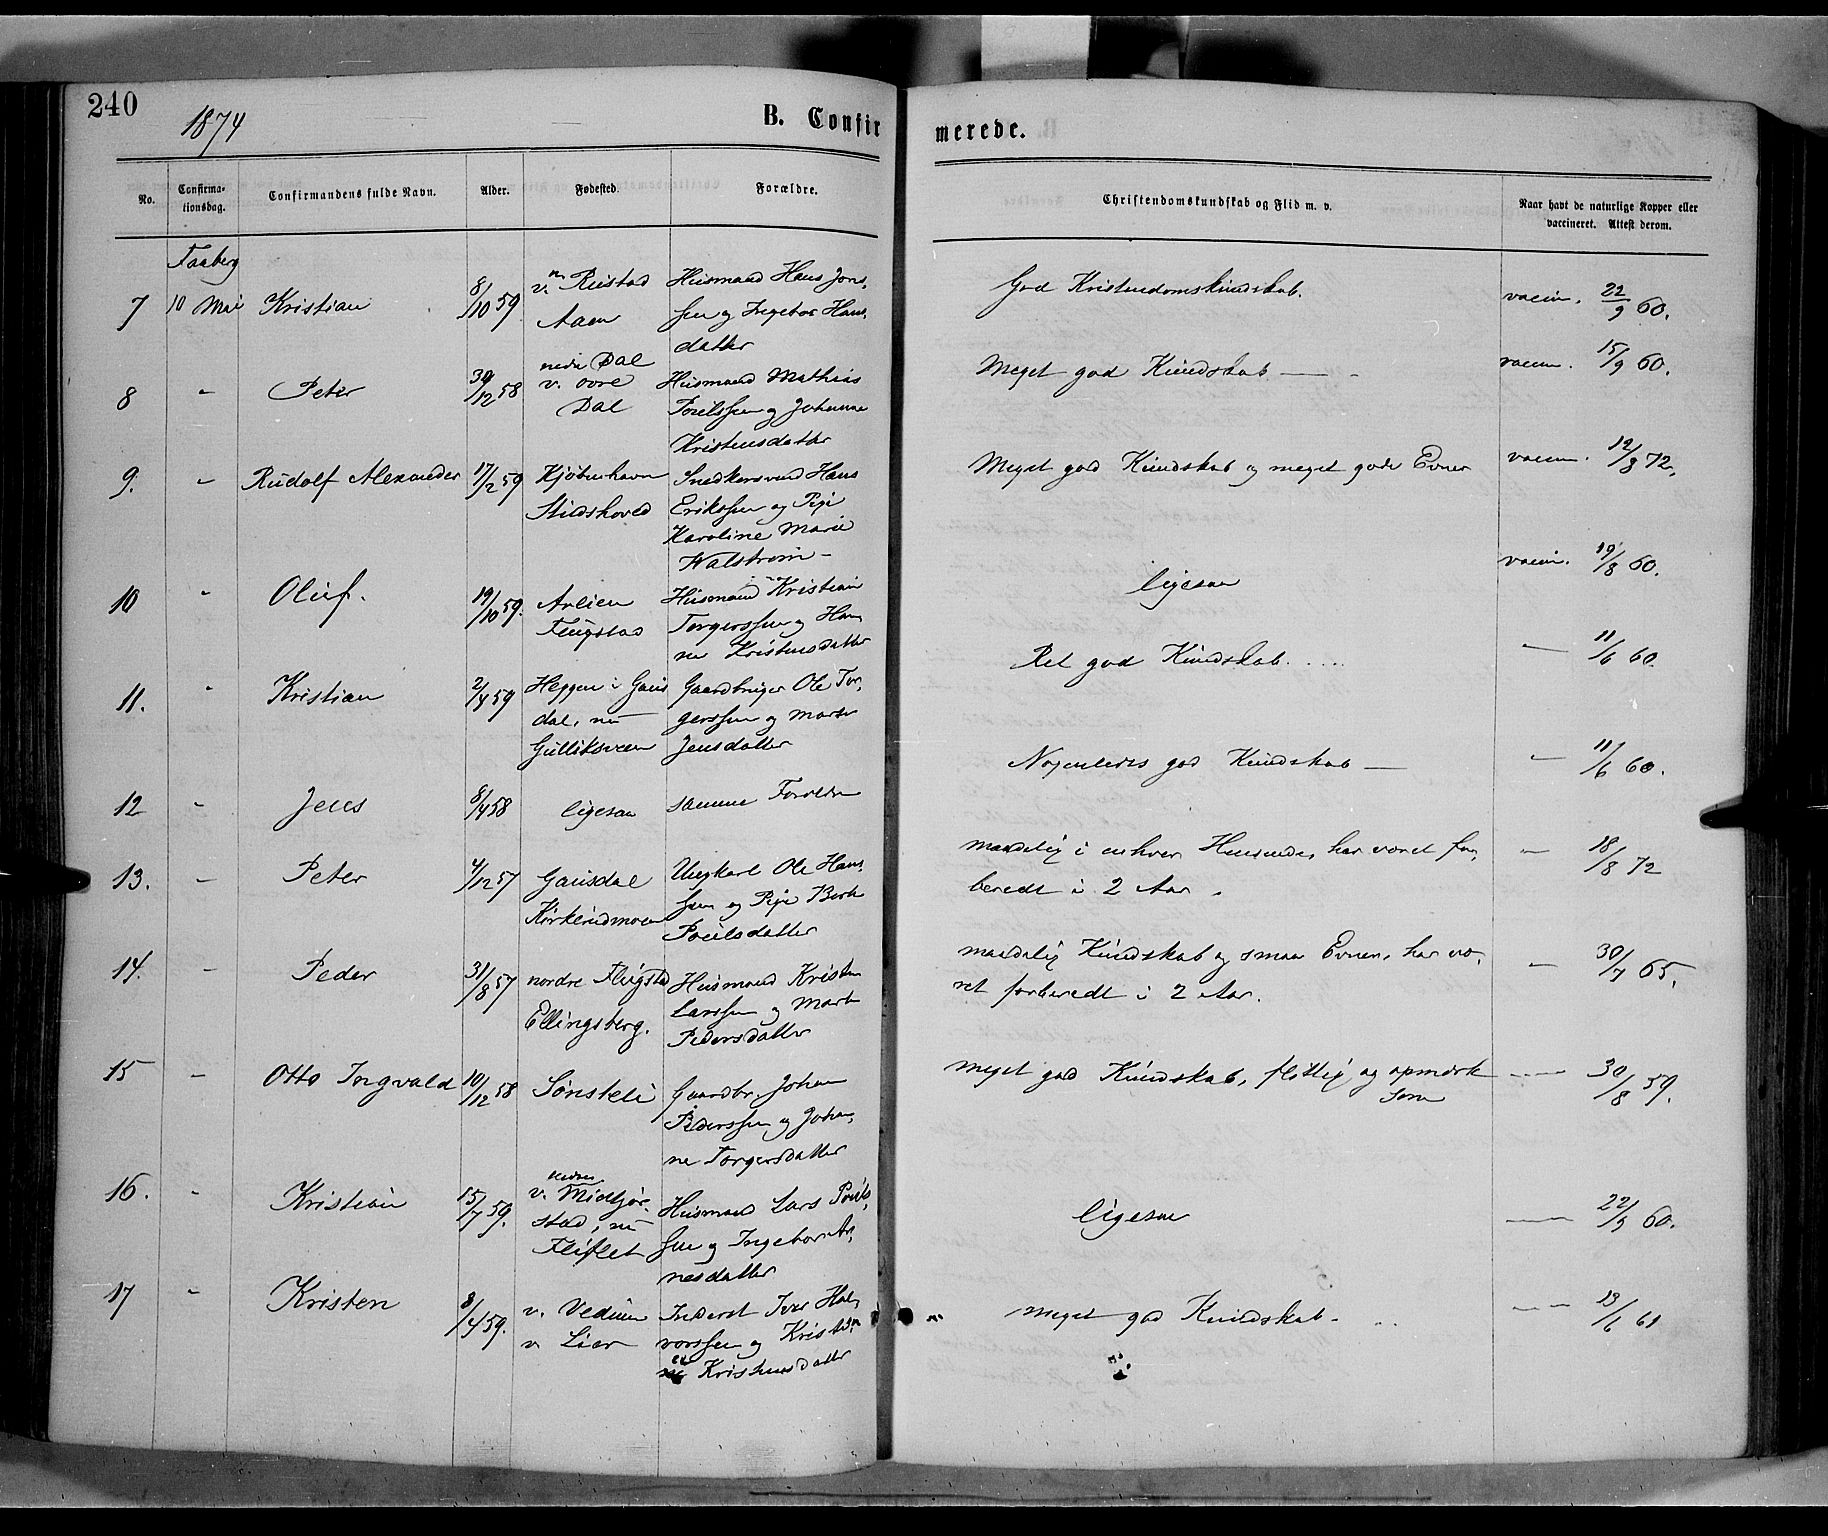 240
1874
B. Confirmerede.
No. Confirmationsdag. Confirmandens fulde Navn. Alder. Fødested. Forældre. Christendomskundskab og Flid m. v. Naar havt de naturlige Kopper eller vaccineret. Attest derom.
Faaberg
7 10 Mai Kristian 8/10 59 v. n Rustad Husmand Hans Jons- God Kristendomskundskab. vaccin. 22/9 60.
Aaen sen og Ingebor Hans-
datter
8 " Peter 30/12 58 nedre Dal
v. øvre Husmand Mathias Meget god Kundskab vaccin. 15/9 60.
Dal Poulssen og Johanne
Kristensdatter
9. " Rudolf Alexander 17/2 59 Kjøbenhavn Snedkersvend Hans Meget god Kundskab og meget gode Evner vaccin. 12/8 72.
Erikssen og Pige
Karoline Marie
Walstrøm
10 " Oluf. 19/10 59. Husmand Kristian ligesaa vaccin. 19/8 60.
Flugstad Torgerssen og Han-
ne Kristensdatter
11. " Kristian 2/4 59 Heggen i Gaus- Gaardbruger Ole Tor- Ret god Kundskab. 11/6 60.
dal, nu gerssen og Marte
Gulliksveen Jensdatter
12 " Jens 8/4 58 ligesaa samme Forældre Nogenledes god Kundskab 11/6 60.
13. " Peter 4/12 57 Gausdal Ungkarl Ole Hans- maadelig i enhver Henseende, har været for-
sen og Pige Berte beredt i 2 Aar. 18/8 72
Poulsdatter
14. " Peder 31/8 57 nordre Flugstad Husmand Kristen maadelig Kundskab og smaa Evner, har væ-
Ellingsberg. Larssen og Marte ret forberedt i 2 Aar. 30/7 65.
Pedersdatter
15 " Otto Ingvald 10/12 58 Sønsteli Gaardbr. Johan meget god Kundskab, flittig og opmærk- 30/8 59.
Pederssen og Johan- som
ne Torgersdatter
16. " Kristian 15/7 59. nedre
v. Midtjør- Husmand Lars Pouls- ligesaa 22/9 60.
stad, nu sen og Ingebor Ar-
Fliflet nesdatter
17 " Kristen 8/4 59. v. Vedum Inderst Iver Hal- meget god Kundskab. 13/6 61
v. Lier vorssen og
Kristensdatter